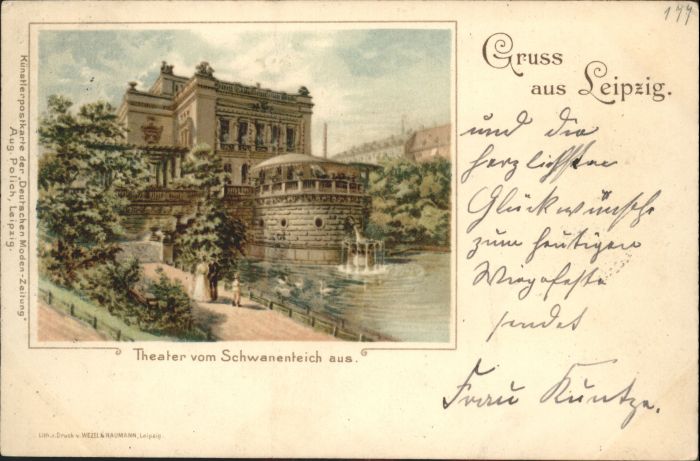 177
Gruss
aus Leipzig.
und die
herzlichsten
Glückwünsche
zum heutigen
Wiegenfeste
sendet
Frau Kuntze.
Künstlerpostkarte der „Deutschen Moden-Zeitung"
Aug. Polich, Leipzig.
Theater vom Schwanenteich aus.
Lith. u. Druck v. WEZEL & NAUMANN, Leipzig.